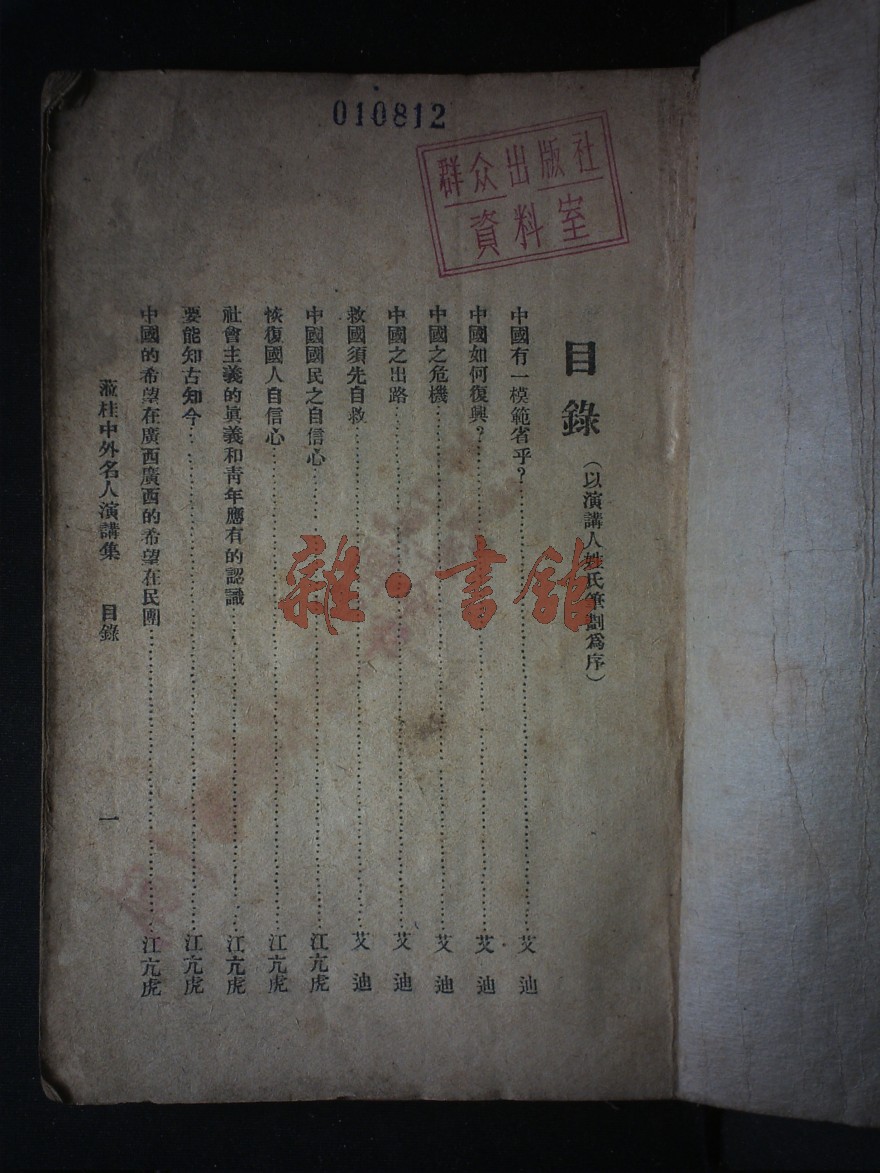 010812
群众出版社
資料室
目錄（以演講人姓氏筆劃為序）
中國有一模範省乎？……艾迪
中國如何復興？……艾迪
中國之危機……艾迪
中國之出路……艾迪
救國須先自救……艾迪
中國國民之自信心……江亢虎
恢復國人自信心……江亢虎
社會主義的眞義和靑年應有的認識……江亢虎
要能知古知今……江亢虎
中國的希望在廣西廣西的希望在民團……江亢虎
蒞桂中外名人演講集 目錄 一
雜·書館